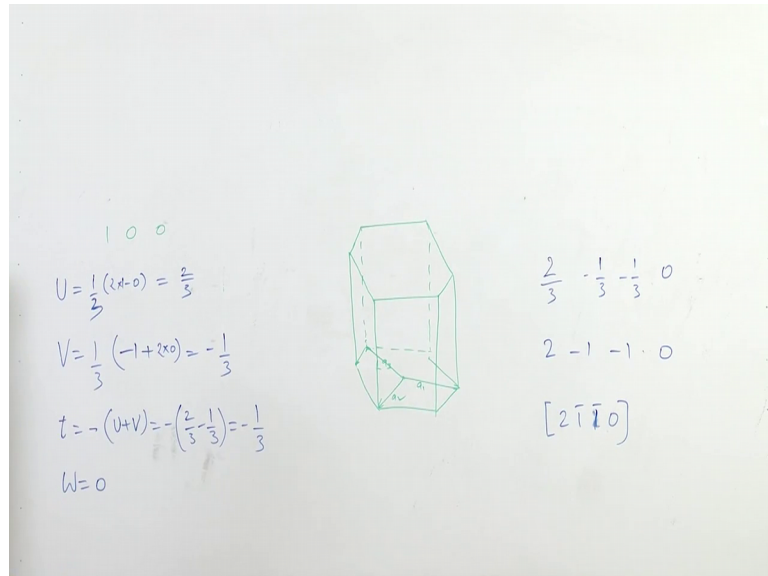 1 0 0
U = 1/3 (2×1-0) = 2/3
V = 1/3 (-1+2×0) = -1/3
t = -(U+V) = -(2/3 - 1/3) = -1/3
W = 0
a₃
a₁
a₂
2/3 -1/3 -1/3 0
2 -1 -1 0
[2 1̄ 1̄ 0]